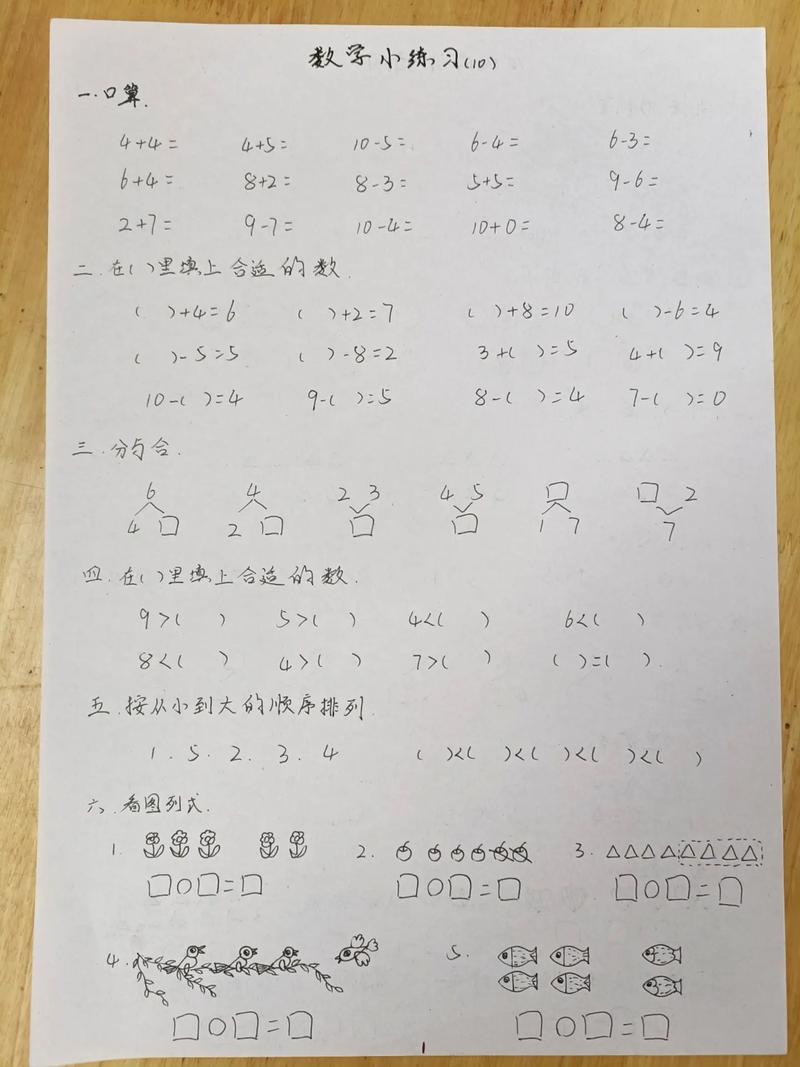 数学小练习(10)
一.口算.
4+4= 4+5= 10-5= 6-4= 6-3=
6+4= 8+2= 8-3= 5+5= 9-6=
2+7= 9-7= 10-4= 10+0= 8-4=
二.在( )里填上合适的数.
( )+4=6 ( )+2=7 ( )+8=10 ( )-6=4
( )-5=5 ( )-8=2 3+( )=5 4+( )=9
10-( )=4 9-( )=5 8-( )=4 7-( )=0
三.分与合.
6 4 2 3 4 5 □ □ 2
4 □ 2 □ □ □ 1 7 7
四.在( )里填上合适的数.
9>( ) 5>( ) 4<( ) 6<( )
8<( ) 4>( ) 7>( ) ( )=( ).
五.按从小到大的顺序排列.
1. 5. 2. 3. 4 ( )<( )<( )<( )<( )
六.看图列式.
1. 2. 3.
□○□=□ □○□=□ □○□=□
4. 5.
□○□=□ □○□=□